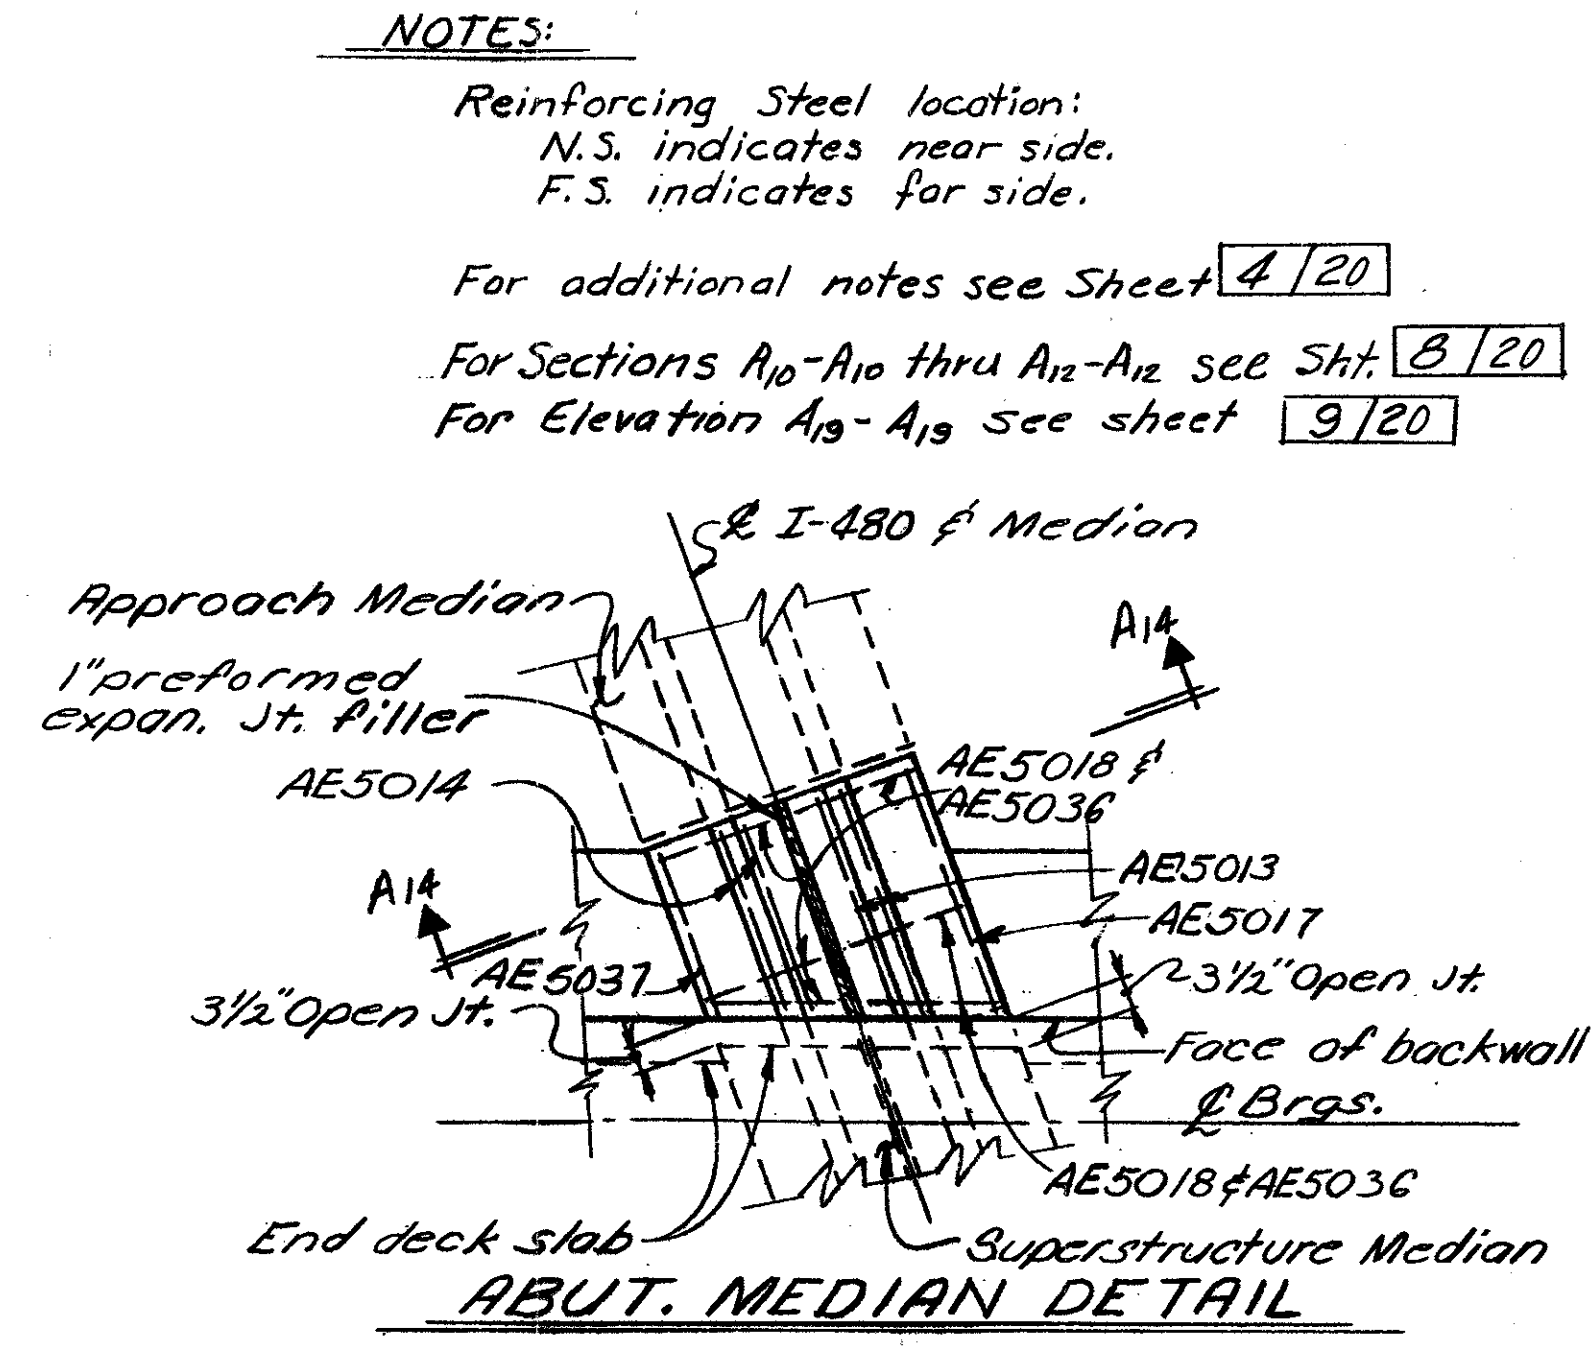 NOTES:
Reinforcing Steel location:
N.S. indicates near side.
F.S. indicates far side.
For additional notes see Sheet 4/20
For Sections A10-A10 thru A12-A12 see Sht. 8/20
For Elevation A19-A19 see sheet 9/20
℄ I-480 & Median
Approach Median
A14
1" preformed
expan. Jt. filler
AE5018 &
AE5036
AE5014
AE5013
A14
AE5017
AE5037
3½" Open Jt.
3½" Open Jt.
Face of backwall
℄ Brgs.
AE5018 & AE5036
End deck slab
Superstructure Median
ABUT. MEDIAN DETAIL